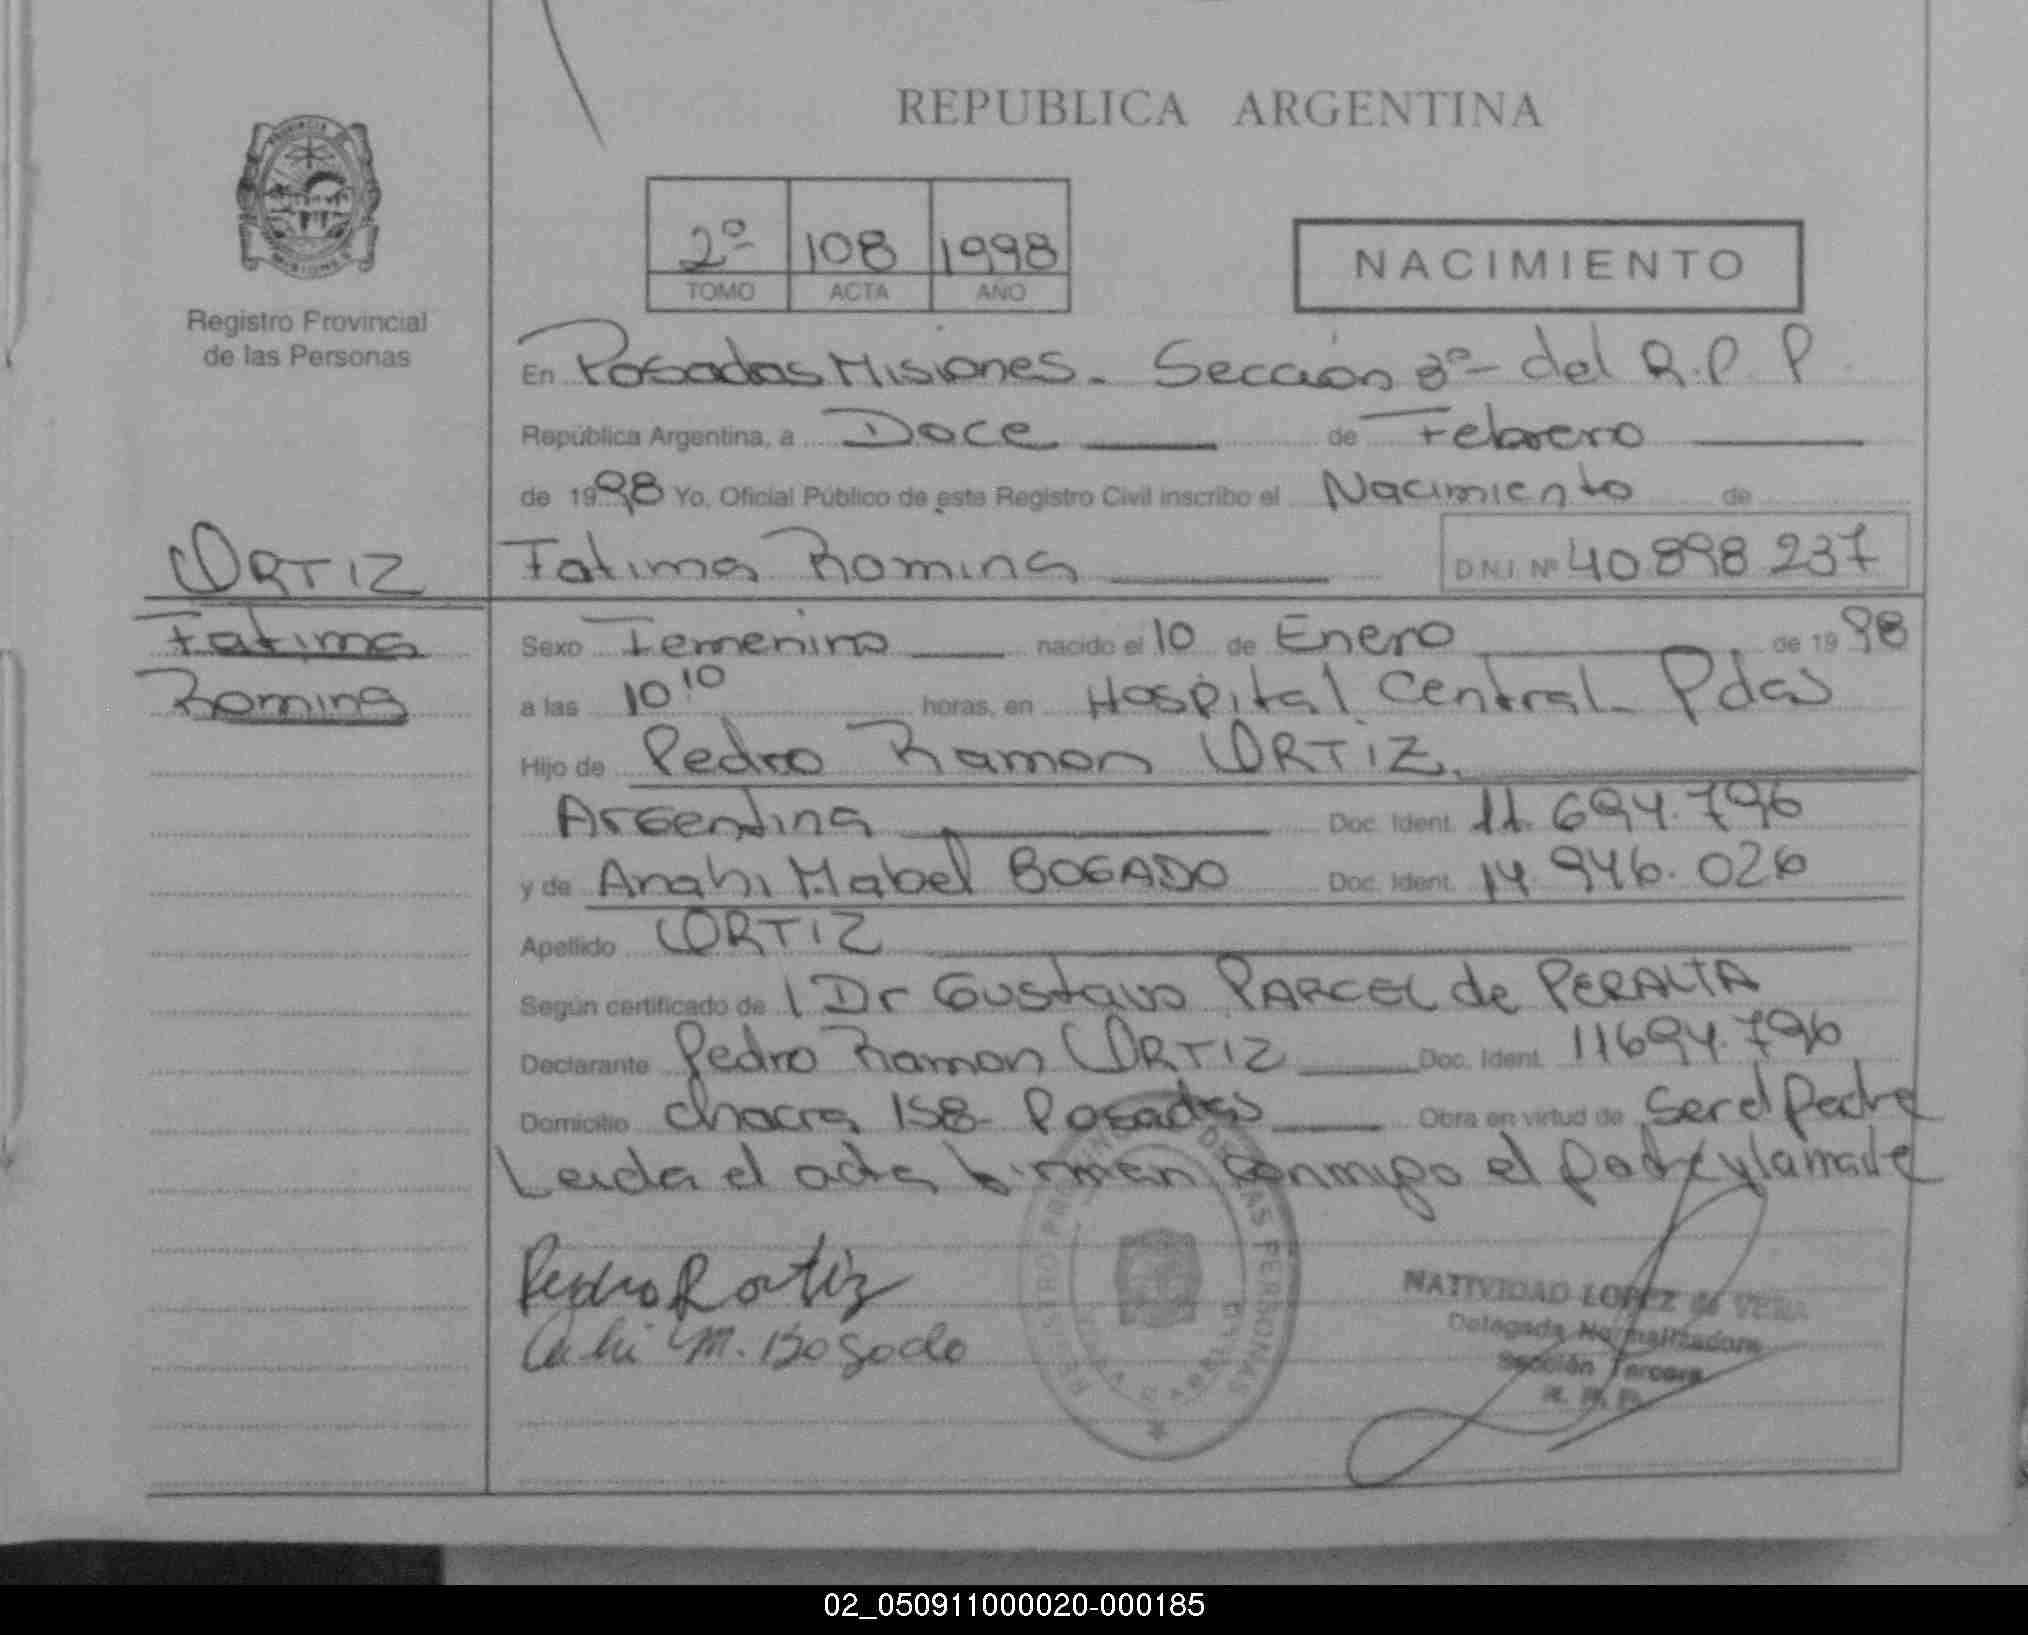 REPUBLICA ARGENTINA
PROVINCIA
MISIONES
Registro Provincial
de las Personas
2º 108 1998
TOMO ACTA AÑO
NACIMIENTO
En Posadas Misiones. Sección 3º del R.P.P.
República Argentina, a Doce de Febrero
de 1998 Yo, Oficial Público de este Registro Civil inscribo el Nacimiento de
ORTIZ Fatima Romina D.N.I. Nº 40.898.237
Fatima
Romina
Sexo Femenino nacido el 10 de Enero de 1998
a las 10 10 horas, en Hospital Central Pdas
Hijo de Pedro Ramon ORTIZ.
Argentina Doc. Ident. 11.694.796
y de Anahi Mabel BOGADO Doc. Ident. 14.946.026
Apellido ORTIZ
Según certificado de Dr Gustavo PARCEL de PERALTA
Declarante Pedro Ramon ORTIZ Doc. Ident. 11694.796
Domicilio chacra 158 Posadas Obra en virtud de Ser el Padre
Leida el acta firman conmigo el padre y la madre
Pedro R Ortiz
M. Bogado
REGISTRO PROVINCIAL DE LAS PERSONAS
NATIVIDAD LOPEZ de VERA
Delegada Normalizadora
Sección Tercera
R. P. P.
02_050911000020-000185